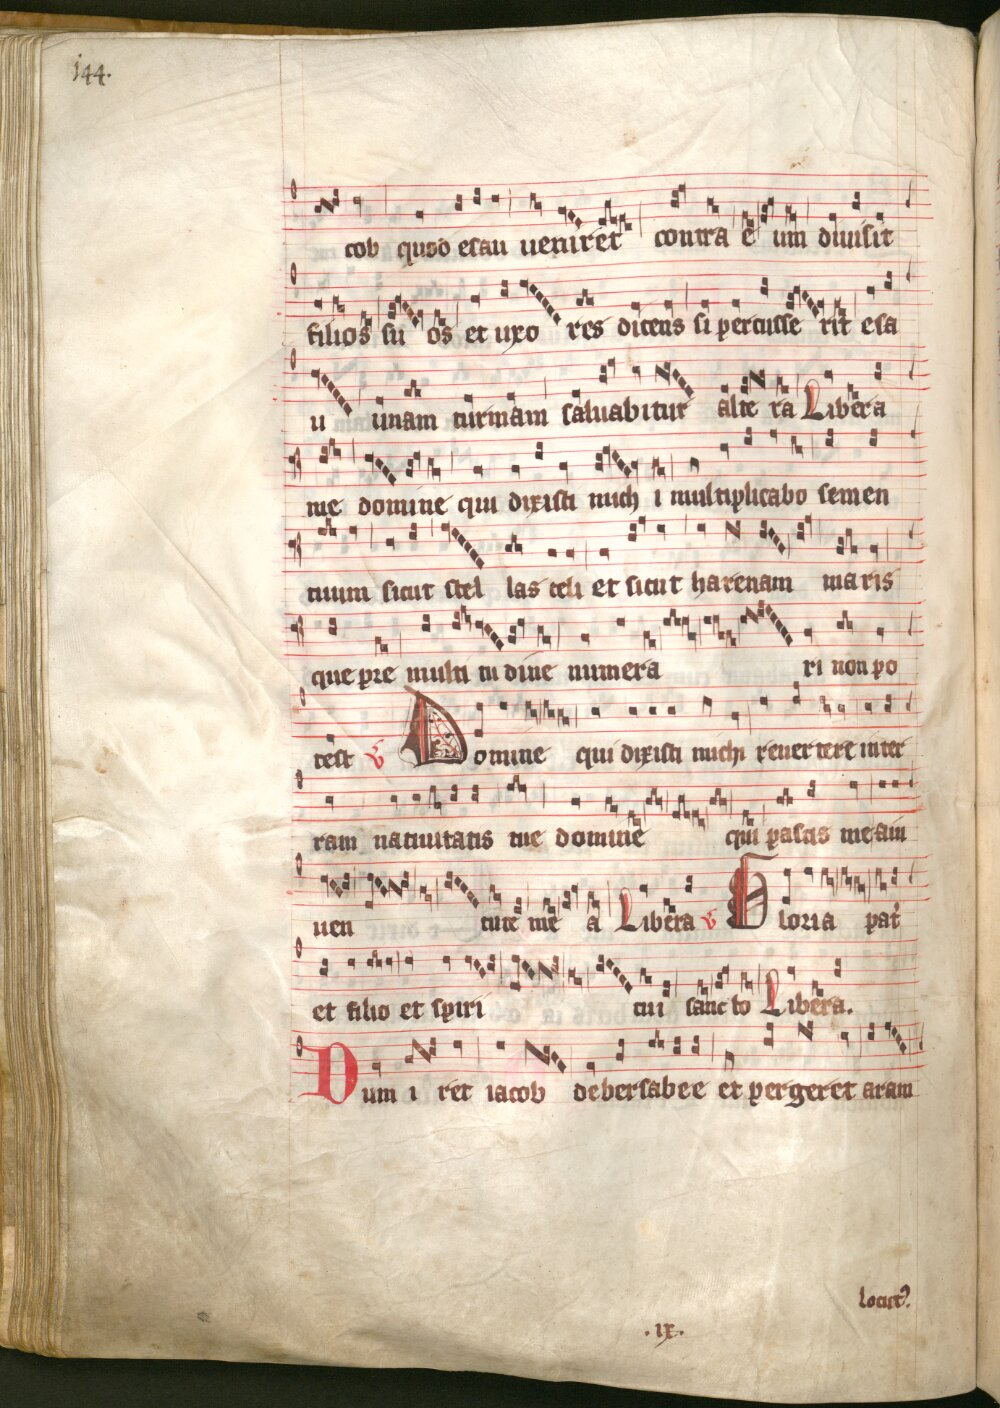 144.
cob quod esau ueniret contra e um diuisit
filios su os et uxo res dicens si percusse rit esa
u unam turmam saluabitur alte ra Libera
me domine qui dixisti mich i multiplicabo semen
tuum sicut stel las celi et sicut harenam maris
que pre multi tu dine numera ri non po
test V Domine qui dixisti michi reuertere in ter
ram natiuitatis tue domine qui pascis me a iu
uen tute me a Libera V Gloria pat
et filio et spiri tui sanc to Libera.
Dum i ret iacob de bersabee et pergeret aram
locut
.ix.